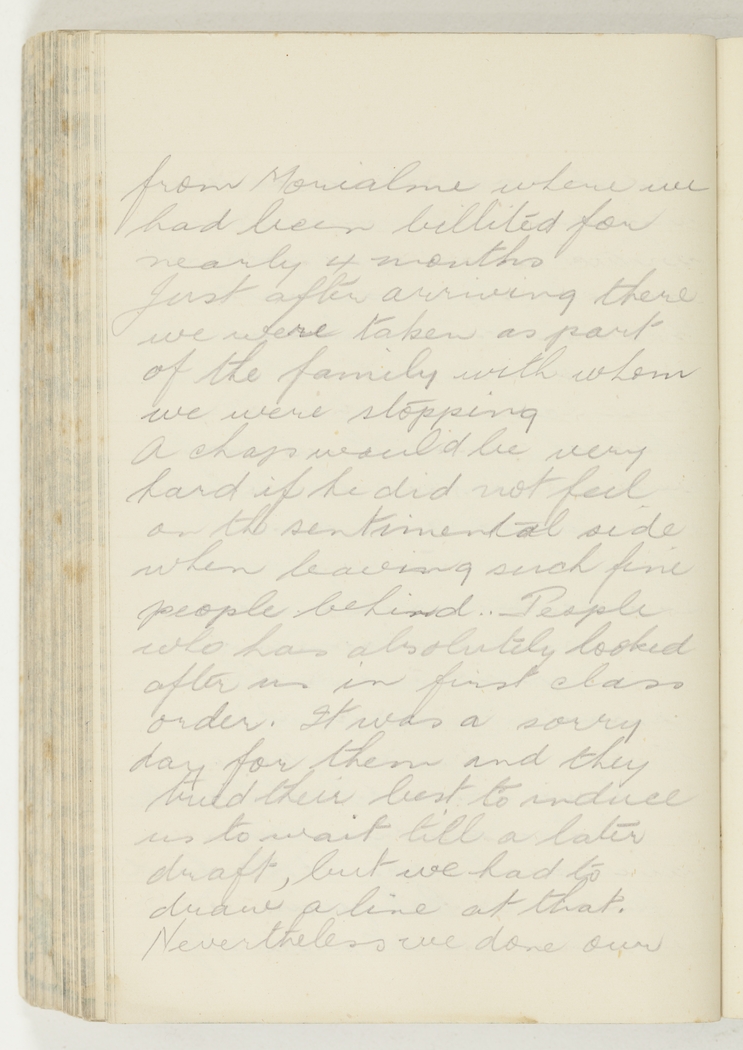 from Morialme where we
had been billited for
nearly 4 months
Just after arriving there
we were taken as part
of the family with whom
we were stopping
A chap would be very
hard if he did not feel
on the sentimental side
when leaving such fine
people behind.. People
who has absolutely looked
after us in first class
order. It was a sorry
day for them and they
tried their best to induce
us to wait till a later
draft, but we had to
draw a line at that.
Nevertheless we done our